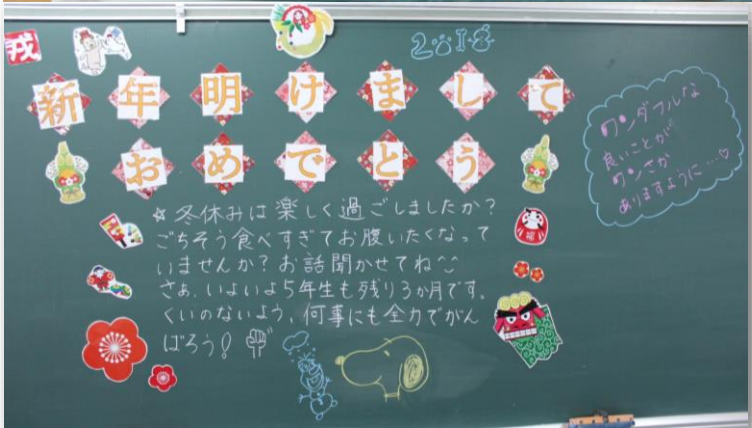 戌
2018
新年明けまして
おめでとう
ワンダフルな
良いことが
ワンさか
ありますように…♡
☆冬休みは楽しく過ごしましたか?
ごちそう食べすぎてお腹いたくなって
いませんか?お話聞かせてね
さぁ、いよいよ5年生も残り3か月です。
くいのないよう、何事にも全力でがん
ばろう!
福